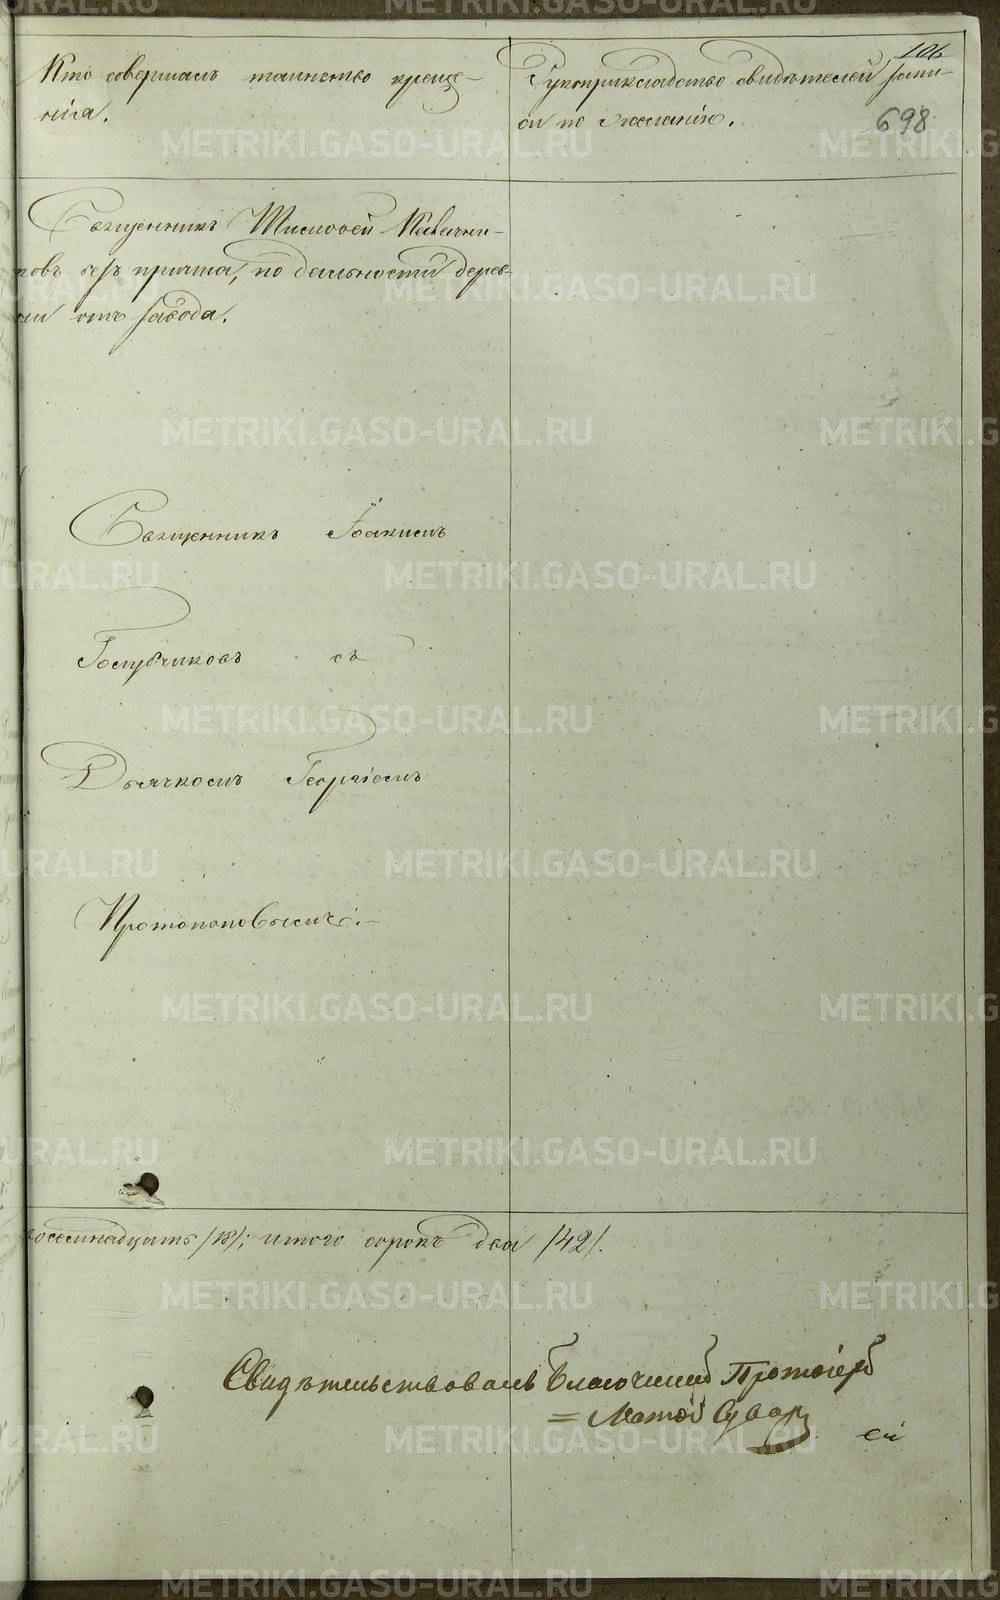 106
Кто совершалъ таинство креще-
нія.
Рукоприкладство свидѣтелей запи-
си по желанію.
698
Священникъ Тимофей
ковъ безъ причта, по дальности дерев-
ни отъ завода.
Священникъ Іоакимъ
Голубчиковъ съ
Дьячкомъ Георгіемъ
Протопоповымъ.
восемнадцать /18/; итого сорокъ два /42/.
Свидѣтельствовалъ Благочинный Протоіерей
METRIKI.GASO-URAL.RU